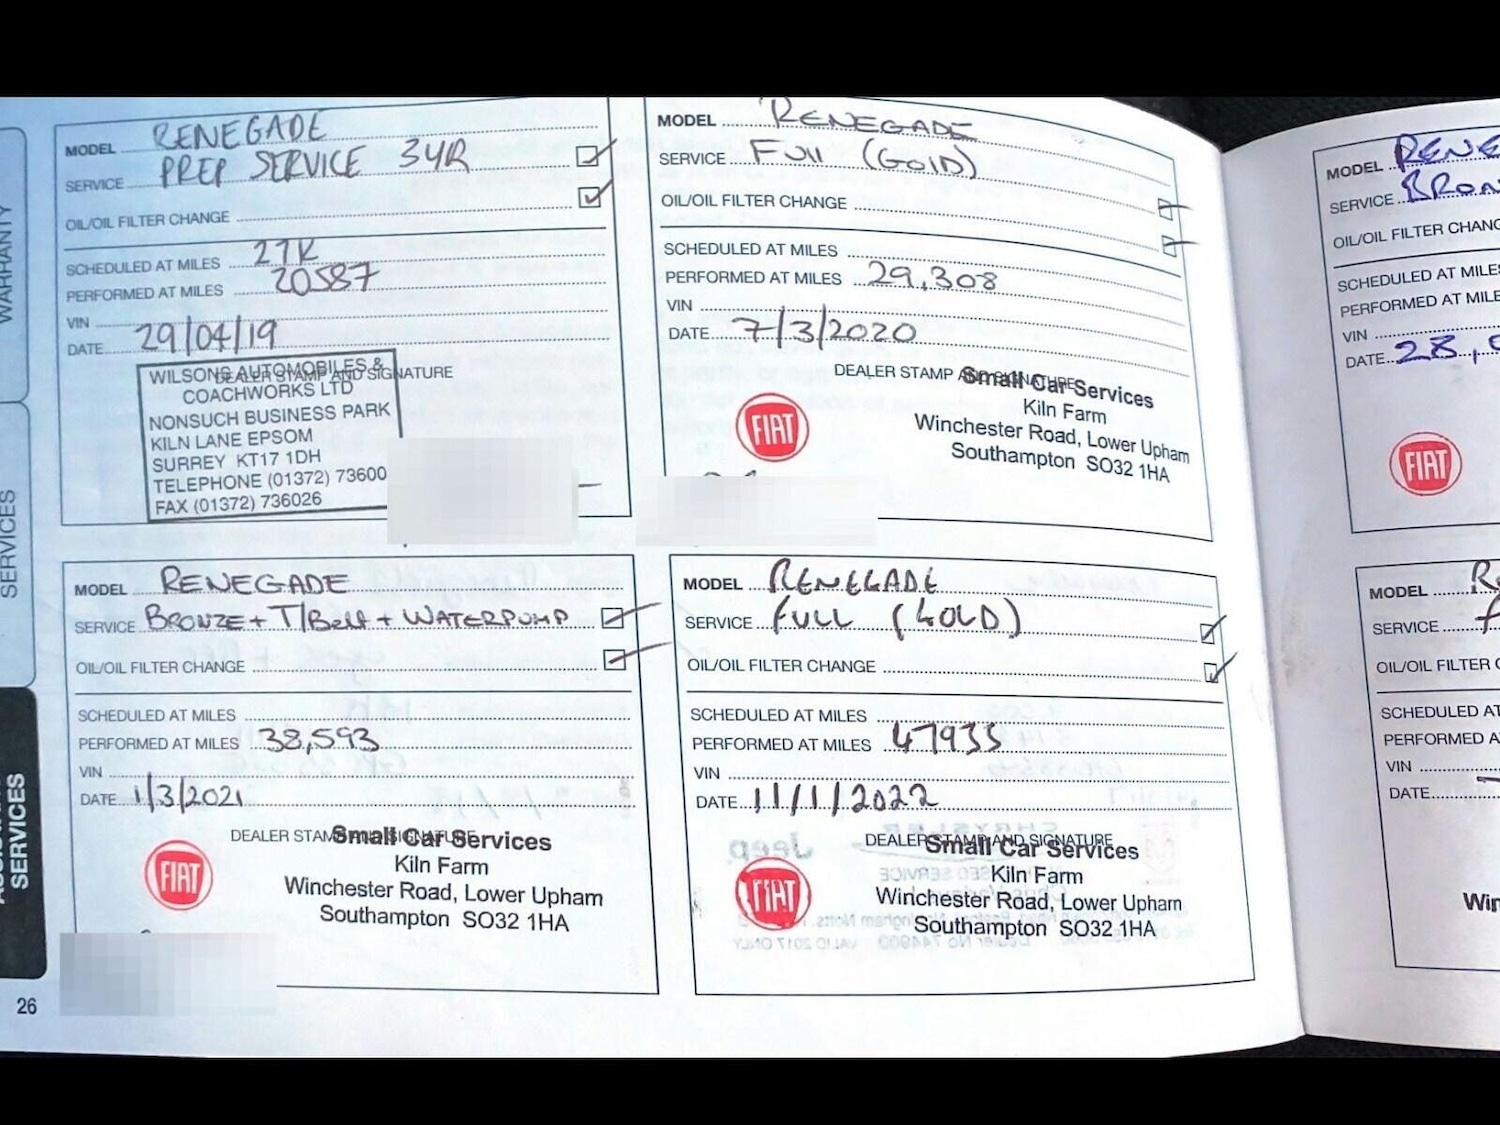 WARRANTY
SERVICES
SERVICES
26
MODEL RENEGADE
SERVICE PREP SERVICE 3YR
OIL/OIL FILTER CHANGE
SCHEDULED AT MILES 27K
PERFORMED AT MILES 20587
VIN
DATE 29/04/19
DEALER STAMP AND SIGNATURE
WILSONS AUTOMOBILES &
COACHWORKS LTD
NONSUCH BUSINESS PARK
KILN LANE EPSOM
SURREY KT17 1DH
TELEPHONE (01372) 73600
FAX (01372) 736026
MODEL RENEGADE
SERVICE FUll (GOlD)
OIL/OIL FILTER CHANGE
SCHEDULED AT MILES
PERFORMED AT MILES 29,308
VIN
DATE 7/3/2020
DEALER STAMP AND SIGNATURE
Small Car Services
Kiln Farm
Winchester Road, Lower Upham
Southampton SO32 1HA
FIAT
MODEL RENEGADE
SERVICE BRONZE + T/Belt + WATERPUMP
OIL/OIL FILTER CHANGE
SCHEDULED AT MILES
PERFORMED AT MILES 38,593
VIN
DATE 1/3/2021
DEALER STAMP AND SIGNATURE
Small Car Services
Kiln Farm
Winchester Road, Lower Upham
Southampton SO32 1HA
FIAT
MODEL RENEGADE
SERVICE FULL (GOLD)
OIL/OIL FILTER CHANGE
SCHEDULED AT MILES
PERFORMED AT MILES 47935
VIN
DATE 11/1/2022
DEALER STAMP AND SIGNATURE
Small Car Services
Kiln Farm
Winchester Road, Lower Upham
Southampton SO32 1HA
FIAT
MODEL RENE
SERVICE BRON
OIL/OIL FILTER CHANG
SCHEDULED AT MILES
PERFORMED AT MILE
VIN
DATE 28,
FIAT
MODEL RE
SERVICE
OIL/OIL FILTER C
SCHEDULED AT
PERFORMED A
VIN
DATE
Win